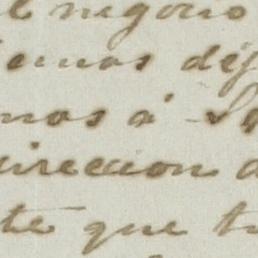 el negocio
emos dej
mos á
direccion
te que